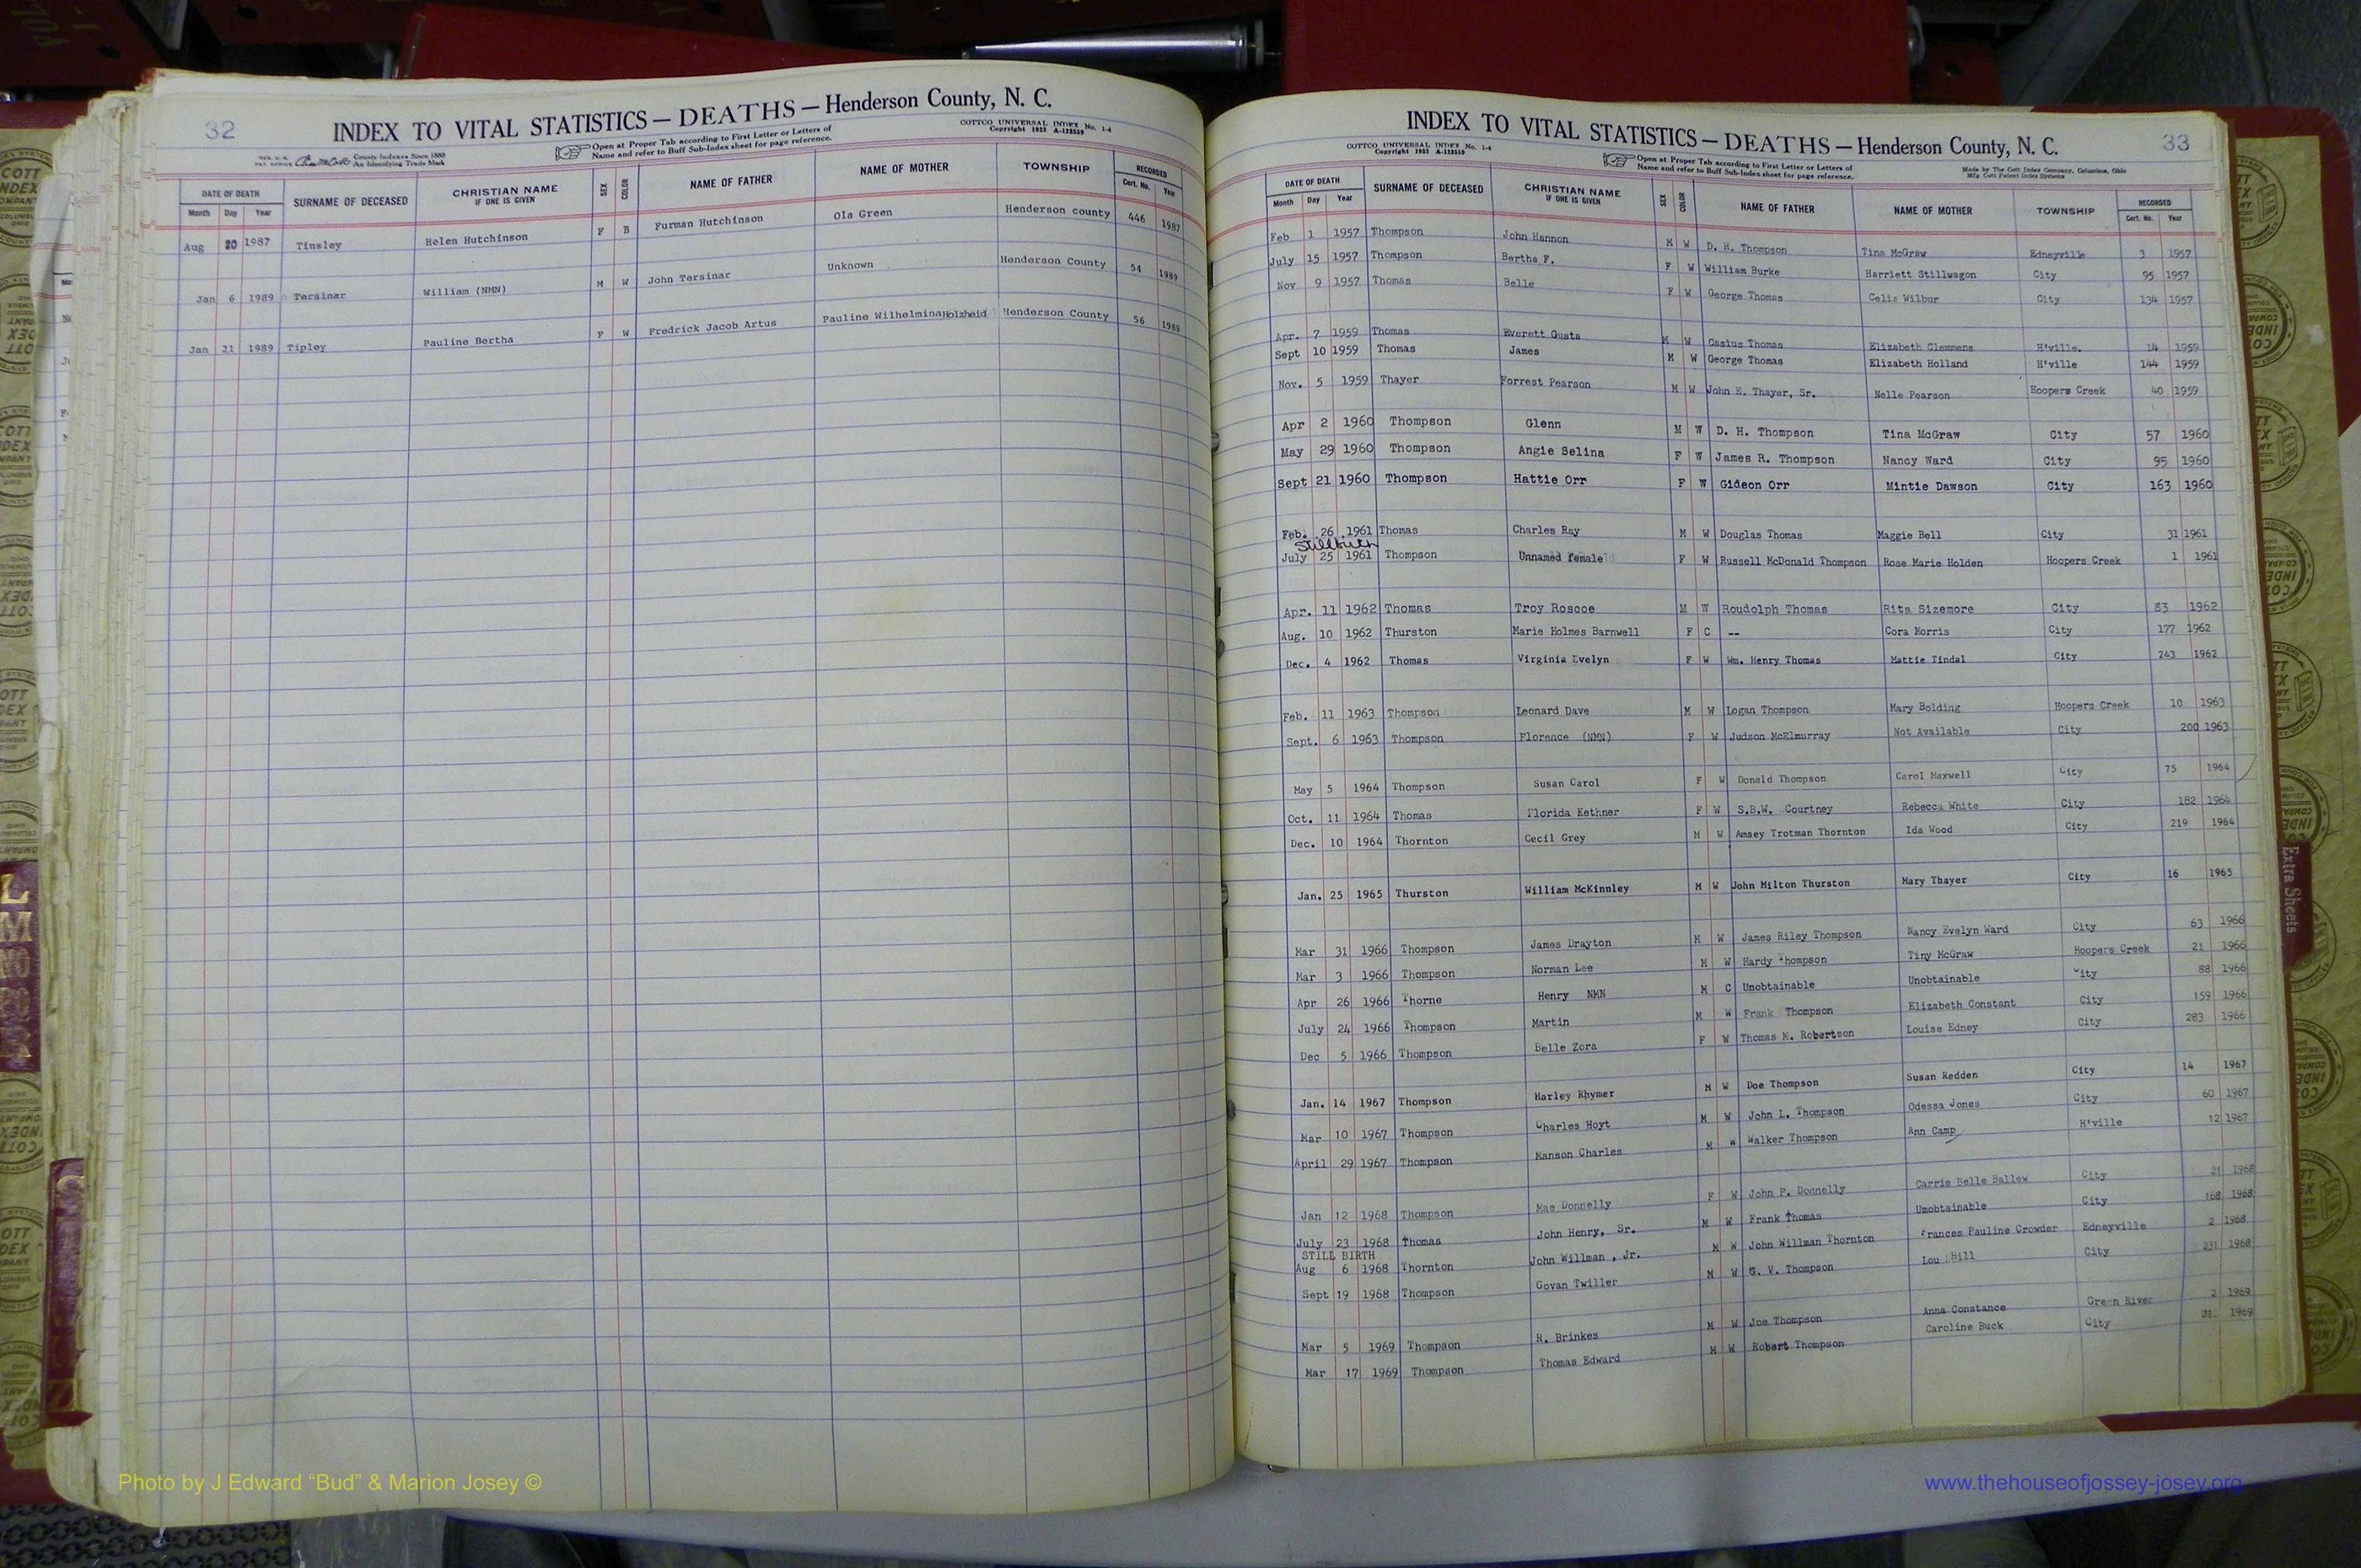 32
INDEX TO VITAL STATISTICS — DEATHS — Henderson County, N. C.
COTTCO UNIVERSAL INDEX No. 1-4
Copyright 1923 A-122559
County Indexes Since 1888
An Identifying Trade Mark
Open at Proper Tab according to First Letter or Letters of
Name and refer to Buff Sub-Index sheet for page reference.
DATE OF DEATH SURNAME OF DECEASED CHRISTIAN NAME IF ONE IS GIVEN SEX COLOR NAME OF FATHER NAME OF MOTHER TOWNSHIP RECORDED
Month Day Year Cert. No. Year
Aug 20 1987 Tinsley Helen Hutchinson F B Furman Hutchinson Ola Green Henderson county 446 1987
Jan 6 1989 Tersinar William (NMN) M W John Tersinar Unknown Henderson County 54 1989
Jan 21 1989 Tipley Pauline Bertha F W Fredrick Jacob Artus Pauline Wilhelmina Holzheid Henderson County 56 1989
33
INDEX TO VITAL STATISTICS — DEATHS — Henderson County, N. C.
COTTCO UNIVERSAL INDEX No. 1-4
Copyright 1923 A-122559
Open at Proper Tab according to First Letter or Letters of
Name and refer to Buff Sub-Index sheet for page reference.
Made by The Cott Index Company, Columbus, Ohio
Mfg. Cott Patent Index Systems
DATE OF DEATH SURNAME OF DECEASED CHRISTIAN NAME IF ONE IS GIVEN SEX COLOR NAME OF FATHER NAME OF MOTHER TOWNSHIP RECORDED
Month Day Year Cert. No. Year
Feb 1 1957 Thompson John Hannon M W D. H. Thompson Tina McGraw Edneyville 3 1957
July 15 1957 Thompson Bertha F. F W William Burke Harriett Stillwagon City 95 1957
Nov 9 1957 Thomas Belle F W George Thomas Celia Wilbur City 134 1957
Apr. 7 1959 Thomas Everett Gusta M W Casius Thomas Elizabeth Clemmens H'ville. 14 1959
Sept 10 1959 Thomas James M W George Thomas Elizabeth Holland H'ville 144 1959
Nov. 5 1959 Thayer Forrest Pearson M W John E. Thayer, Sr. Nelle Pearson Hoopers Creek 40 1959
Apr 2 1960 Thompson Glenn M W D. H. Thompson Tina McGraw City 57 1960
May 29 1960 Thompson Angie Selina F W James R. Thompson Nancy Ward City 95 1960
Sept 21 1960 Thompson Hattie Orr F W Gideon Orr Mintie Dawson City 163 1960
Feb. 26 1961 Thomas Charles Ray M W Douglas Thomas Maggie Bell City 31 1961
Stillbirth
July 25 1961 Thompson Unnamed female F W Russell McDonald Thompson Rose Marie Holden Hoopers Creek 1 1961
Apr. 11 1962 Thomas Troy Roscoe M W Roudolph Thomas Rita Sizemore City 83 1962
Aug. 10 1962 Thurston Marie Holmes Barnwell F C -- Cora Morris City 177 1962
Dec. 4 1962 Thomas Virginia Evelyn F W Wm. Henry Thomas Mattie Tindal City 243 1962
Feb. 11 1963 Thompson Leonard Dave M W Logan Thompson Mary Bolding Hoopers Creek 10 1963
Sept. 6 1963 Thompson Florence (NMN) F W Judson McElmurray Not Available City 200 1963
May 5 1964 Thompson Susan Carol F W Donald Thompson Carol Maxwell City 75 1964
Oct. 11 1964 Thomas Florida Kethner F W S.B.W. Courtney Rebecca White City 182 1964
Dec. 10 1964 Thornton Cecil Grey M W Amsey Trotman Thornton Ida Wood City 219 1964
Jan. 25 1965 Thurston William McKinnley M W John Milton Thurston Mary Thayer City 16 1965
Mar 31 1966 Thompson James Drayton M W James Riley Thompson Nancy Evelyn Ward City 63 1966
Mar 3 1966 Thompson Norman Lee M W Hardy Thompson Tiny McGraw Hoopers Creek 21 1966
Apr 26 1966 Thorne Henry NMN M C Unobtainable Unobtainable City 88 1966
July 24 1966 Thompson Martin M W Frank Thompson Elizabeth Constant City 159 1966
Dec 5 1966 Thompson Belle Zora F W Thomas M. Robertson Louise Edney City 283 1966
Jan. 14 1967 Thompson Harley Rhymer M W Doe Thompson Susan Redden City 14 1967
Mar 10 1967 Thompson Charles Hoyt M W John L. Thompson Odessa Jones City 60 1967
April 29 1967 Thompson Manson Charles M W Walker Thompson Ann Camp H'ville 12 1967
Jan 12 1968 Thompson Mae Donnelly F W John P. Donnelly Carrie Belle Ballew City 21 1968
July 23 1968 Thomas John Henry, Sr. M W Frank Thomas Unobtainable City 168 1968
STILL BIRTH
Aug 6 1968 Thornton John Willman, Jr. M W John Willman Thornton Frances Pauline Crowder Edneyville 2 1968
Sept 19 1968 Thompson Govan Twiller M W G. V. Thompson Lou Hill City 231 1968
Mar 5 1969 Thompson R. Brinkes M W Joe Thompson Anna Constance Green River 2 1969
Mar 17 1969 Thompson Thomas Edward M W Robert Thompson Caroline Buck City 81 1969
Extra Sheets
Photo by J Edward “Bud” & Marion Josey ©
www.thehouseofjossey-josey.org